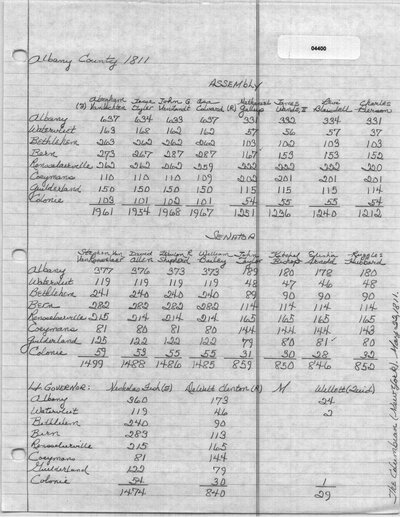 04400
Albany County 1811
ASSEMBLY
Abraham Jesse John G Asa Nathaniel James Levi Charles
(F) Van Vechten Tyler Van Zandt Colvard (R) Gallup II Blaisdell Pierson
Albany 637 634 633 637 331 332 334 331
Watervliet 163 168 162 162 57 56 57 37
Bethlehem 263 262 262 262 103 102 103 103
Bern 273 267 287 287 167 153 153 152
Rensselaerville 262 262 262 259 222 222 222 220
Coeymans 110 110 110 109 202 201 201 201
Guilderland 150 150 150 150 115 115 115 114
Colonie 103 101 102 101 54 55 55 54
1961 1954 1968 1967 1251 1236 1240 1212
SENATOR
Stephen Van David William John Ruggles
Van Rensselaer Allen Shepherd Bailey Taylor Bishop Arnold Hubbard
Albany 377 376 373 373 189 180 178 180
Watervliet 119 119 119 119 48 47 46 48
Bethlehem 241 240 240 240 89 90 90 90
Bern 282 282 282 282 114 114 114 114
Rensselaerville 215 214 214 214 165 165 165 165
Coeymans 81 80 81 80 144 144 144 143
Guilderland 125 122 122 122 79 80 81 80
Colonie 59 53 55 55 31 30 28 32
1499 1488 1486 1485 859 850 846 852
Lt. GOVERNOR: Nicholas Fish (F) DeWitt Clinton (R) M Willett (Quid)
Albany 360 173 24
Watervliet 119 46 2
Bethlehem 240 90
Bern 283 113
Rensselaerville 215 165
Coeymans 81 144
Guilderland 122 79
Colonie 54 30 1
1474 840 29
The Columbian (New York). May 24, 1811.